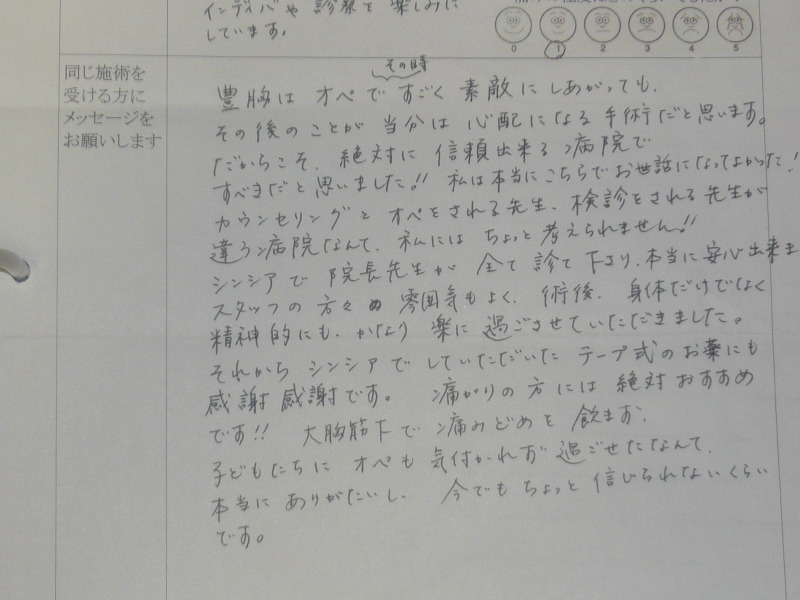 インディバや診察を楽しみに
しています。
0 1 2 3 4 5
同じ施術を
受ける方に
メッセージを
お願いします
その時
豊胸は オペで すごく 素敵に しあがっても、
その後のことが 当分は 心配になる 手術だと思います。
だからこそ、絶対に 信頼出来る 病院で
すべきだと思いました!! 私は本当にこちらでお世話になってよかった!
カウンセリングと オペをされる先生、検診をされる先生が
違う病院なんて、私には ちょっと 考えられません!!
シンシアで 院長先生が 全て 診て 下さり、本当に 安心出来ま
スタッフの方々の 雰囲気もよく、術後、身体だけでなく
精神的にも、かなり 楽に 過ごさせていただきました。
それから シンシアで していただいた テープ式のお薬にも
感謝 感謝です。 痛がりの方には 絶対 おすすめ
です!! 大胸筋下で 痛みどめを 飲まず、
子どもたちに オペも 気付かれず 過ごせたなんて、
本当に ありがたいし、 今でも ちょっと 信じられないくらい
です。